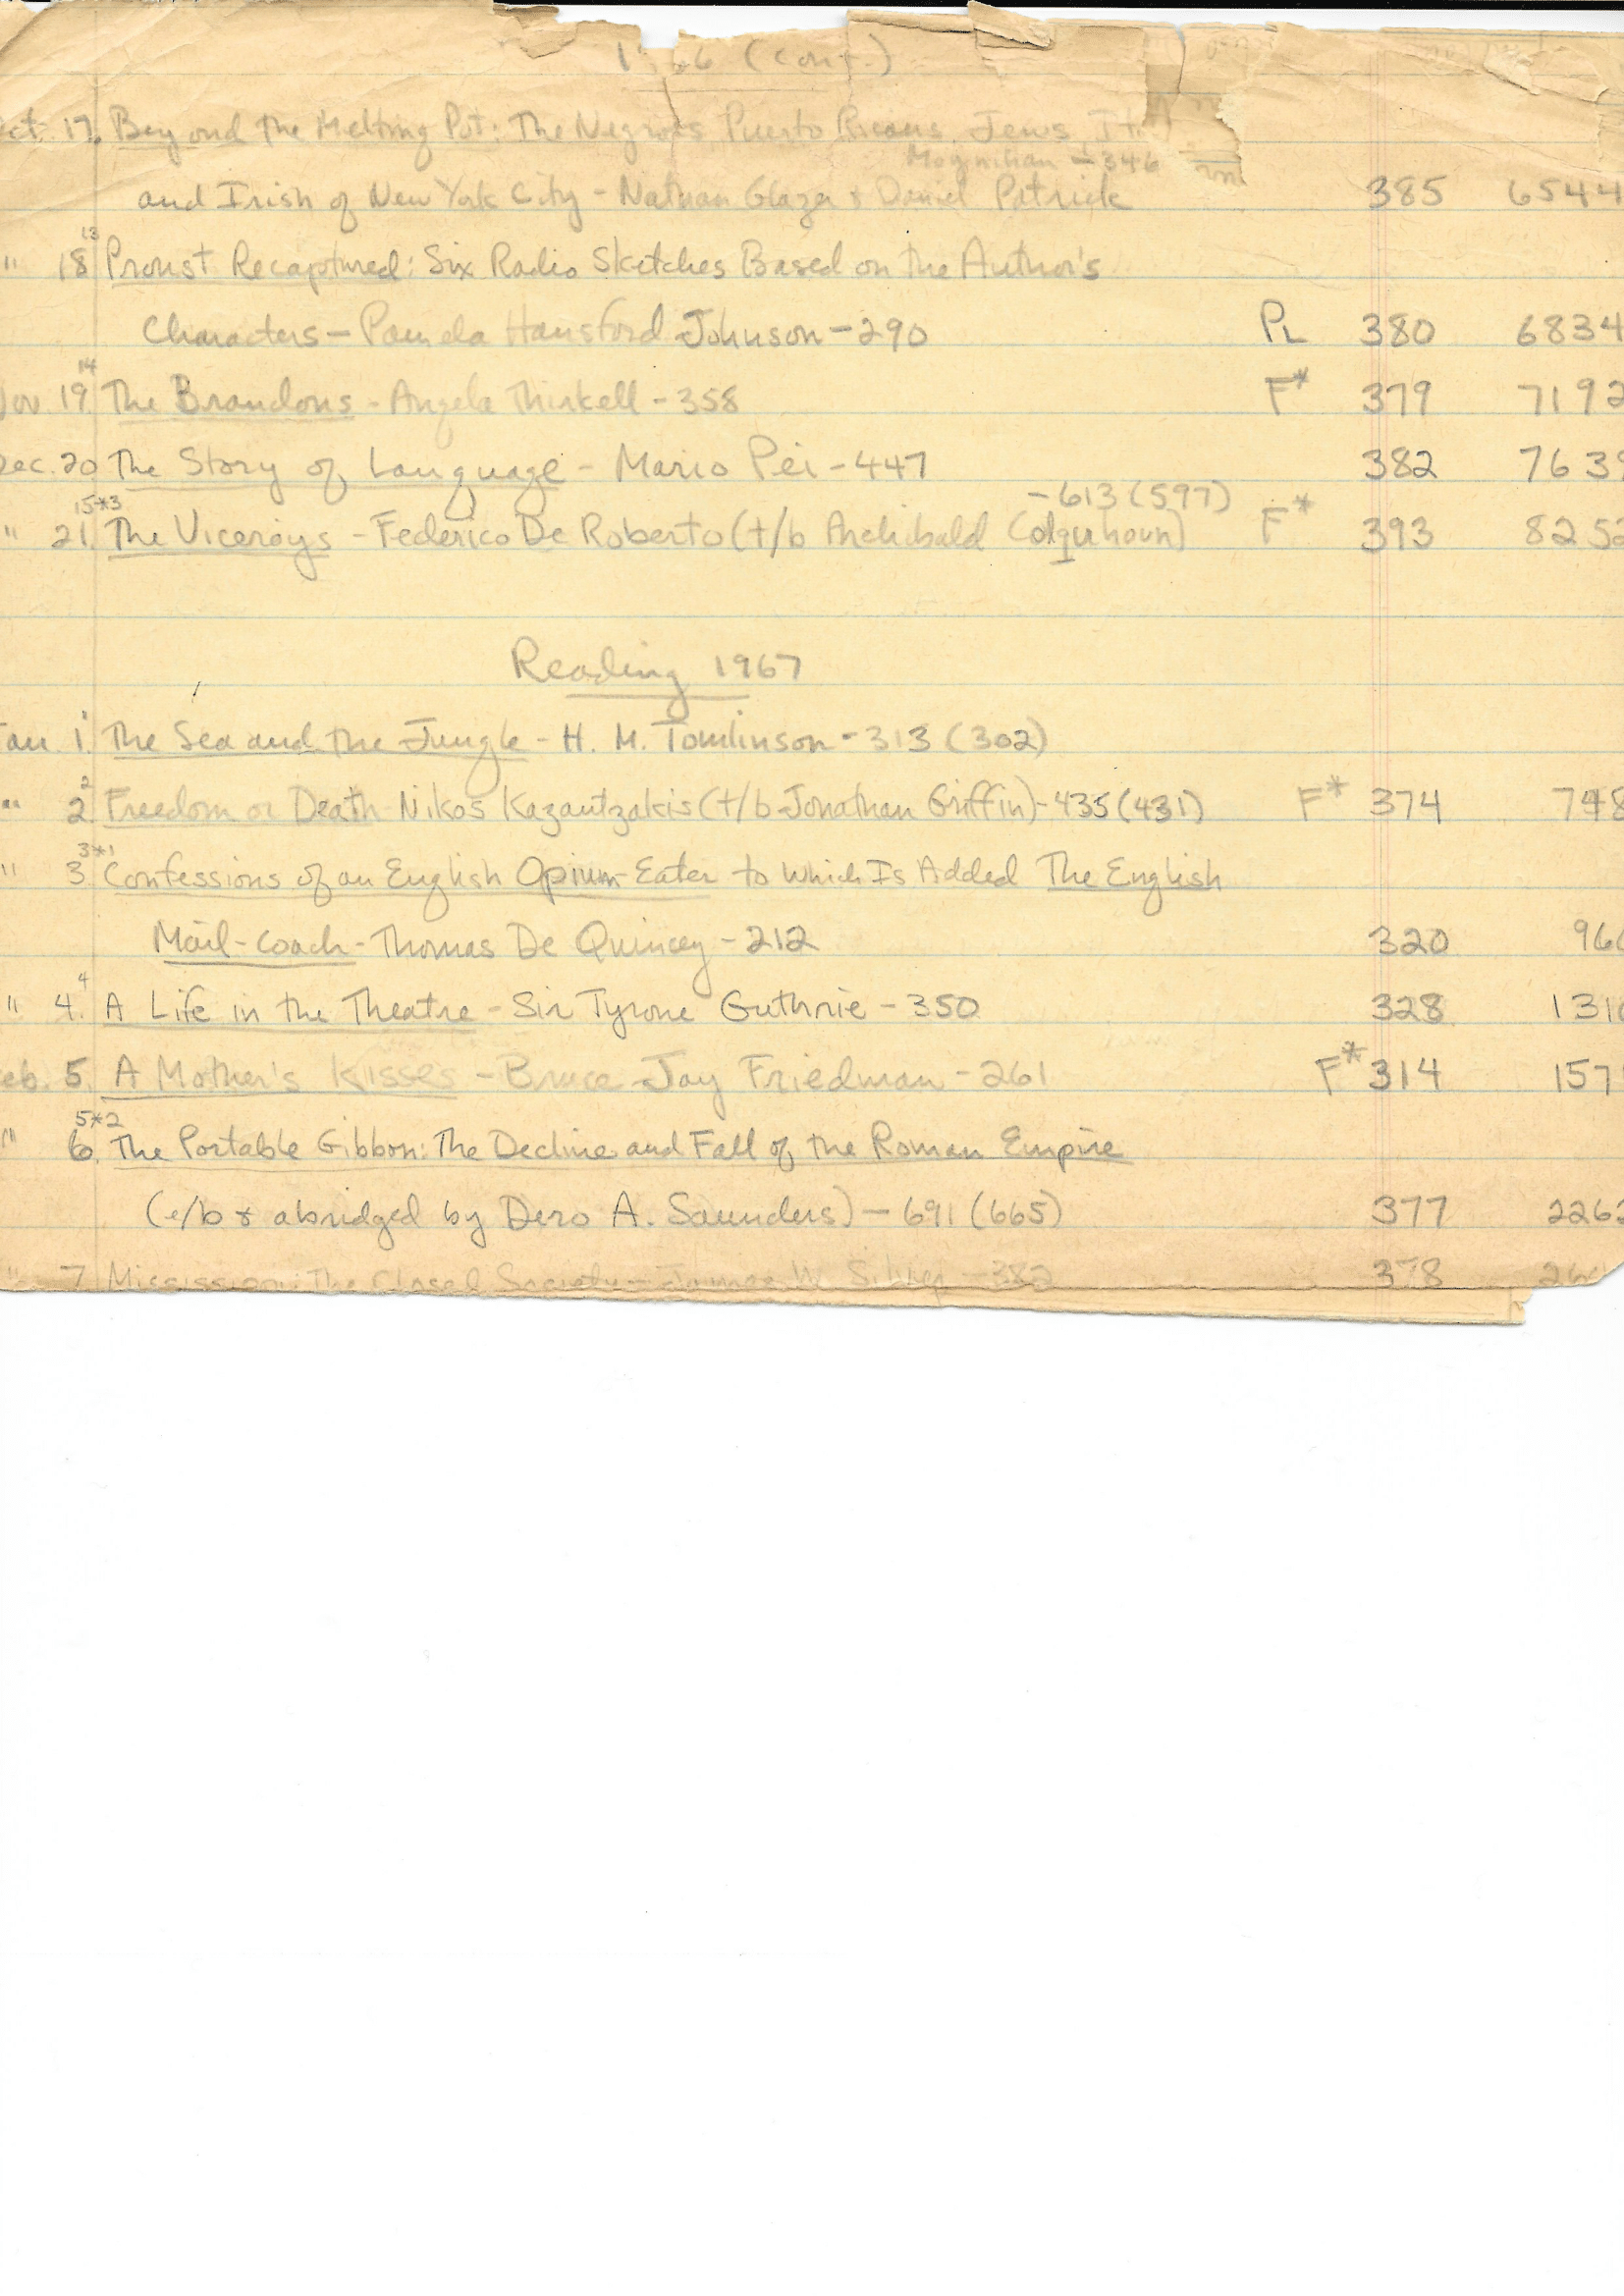 1966 (cont.)
ct. 17. Beyond the Melting Pot: The Negroes Puerto Ricans, Jews, It
Moynihan - 346
and Irish of New York City - Nathan Glazer & Daniel Patrick 385 6544
13
" 18. Proust Recaptured: Six Radio Sketches Based on the Author's
Characters - Pamela Hansford Johnson - 290 PL 380 6834
14
ov. 19. The Brandons - Angela Thirkell - 358 F* 379 7192
Dec. 20 The Story of Language - Mario Pei - 447 382 7639
15*3 - 613 (597)
" 21. The Viceroys - Federico De Roberto (t/b Archibald Colquhoun) F* 393 8252
Reading 1967
1
an. 1. The Sea and the Jungle - H. M. Tomlinson - 313 (302)
2
" 2. Freedom or Death Nikos Kazantzakis (t/b Jonathan Griffin) - 435 (431) F* 374 748
3*1
" 3. Confessions of an English Opium-Eater to Which Is Added The English
Mail-Coach - Thomas De Quincey - 212 320 960
4
" 4. A Life in the Theatre - Sir Tyrone Guthrie - 350 328 1310
eb. 5. A Mother's Kisses - Bruce Jay Friedman - 261 F* 314 157
5*2
" 6. The Portable Gibbon: The Decline and Fall of the Roman Empire
(e/b & abridged by Dero A. Saunders) - 691 (665) 377 2262
" 7 Mississippi: The Closed Society - James W. Silver - 382 378